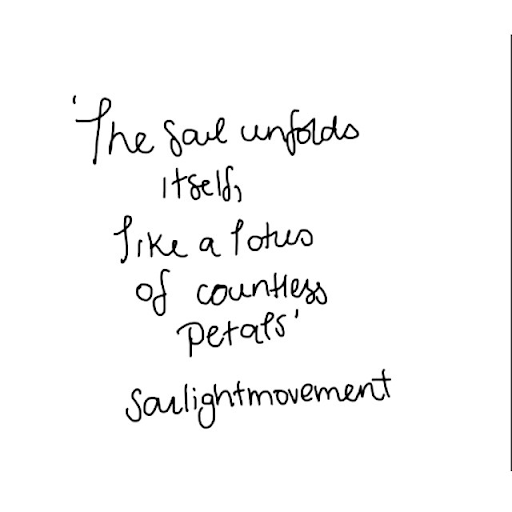 'The soul unfolds
itself,
like a lotus
of countless
petals'
soulightmovement